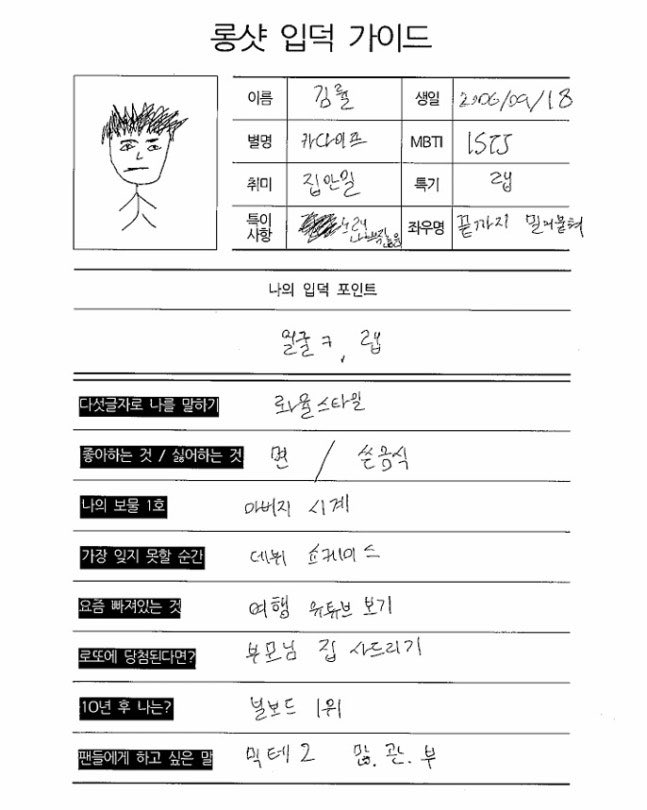 롱샷 입덕 가이드
이름 김률 생일 2006/09/18
별명 카다이프 MBTI ISTJ
취미 집안일 특기 랩
특이사항 노래 좌우명 끝까지 밀어붙혀
나의 입덕 포인트
얼굴ㅋ, 랩
다섯글자로 나를 말하기 롸율스타일
좋아하는 것 / 싫어하는 것 면 / 쓴음식
나의 보물 1호 아버지 시계
가장 잊지 못할 순간 데뷔 쇼케이스
요즘 빠져있는 것 여행 유튜브 보기
로또에 당첨된다면? 부모님 집 사드리기
10년 후 나는? 빌보드 1위
팬들에게 하고 싶은 말 믹테2 많.관.부